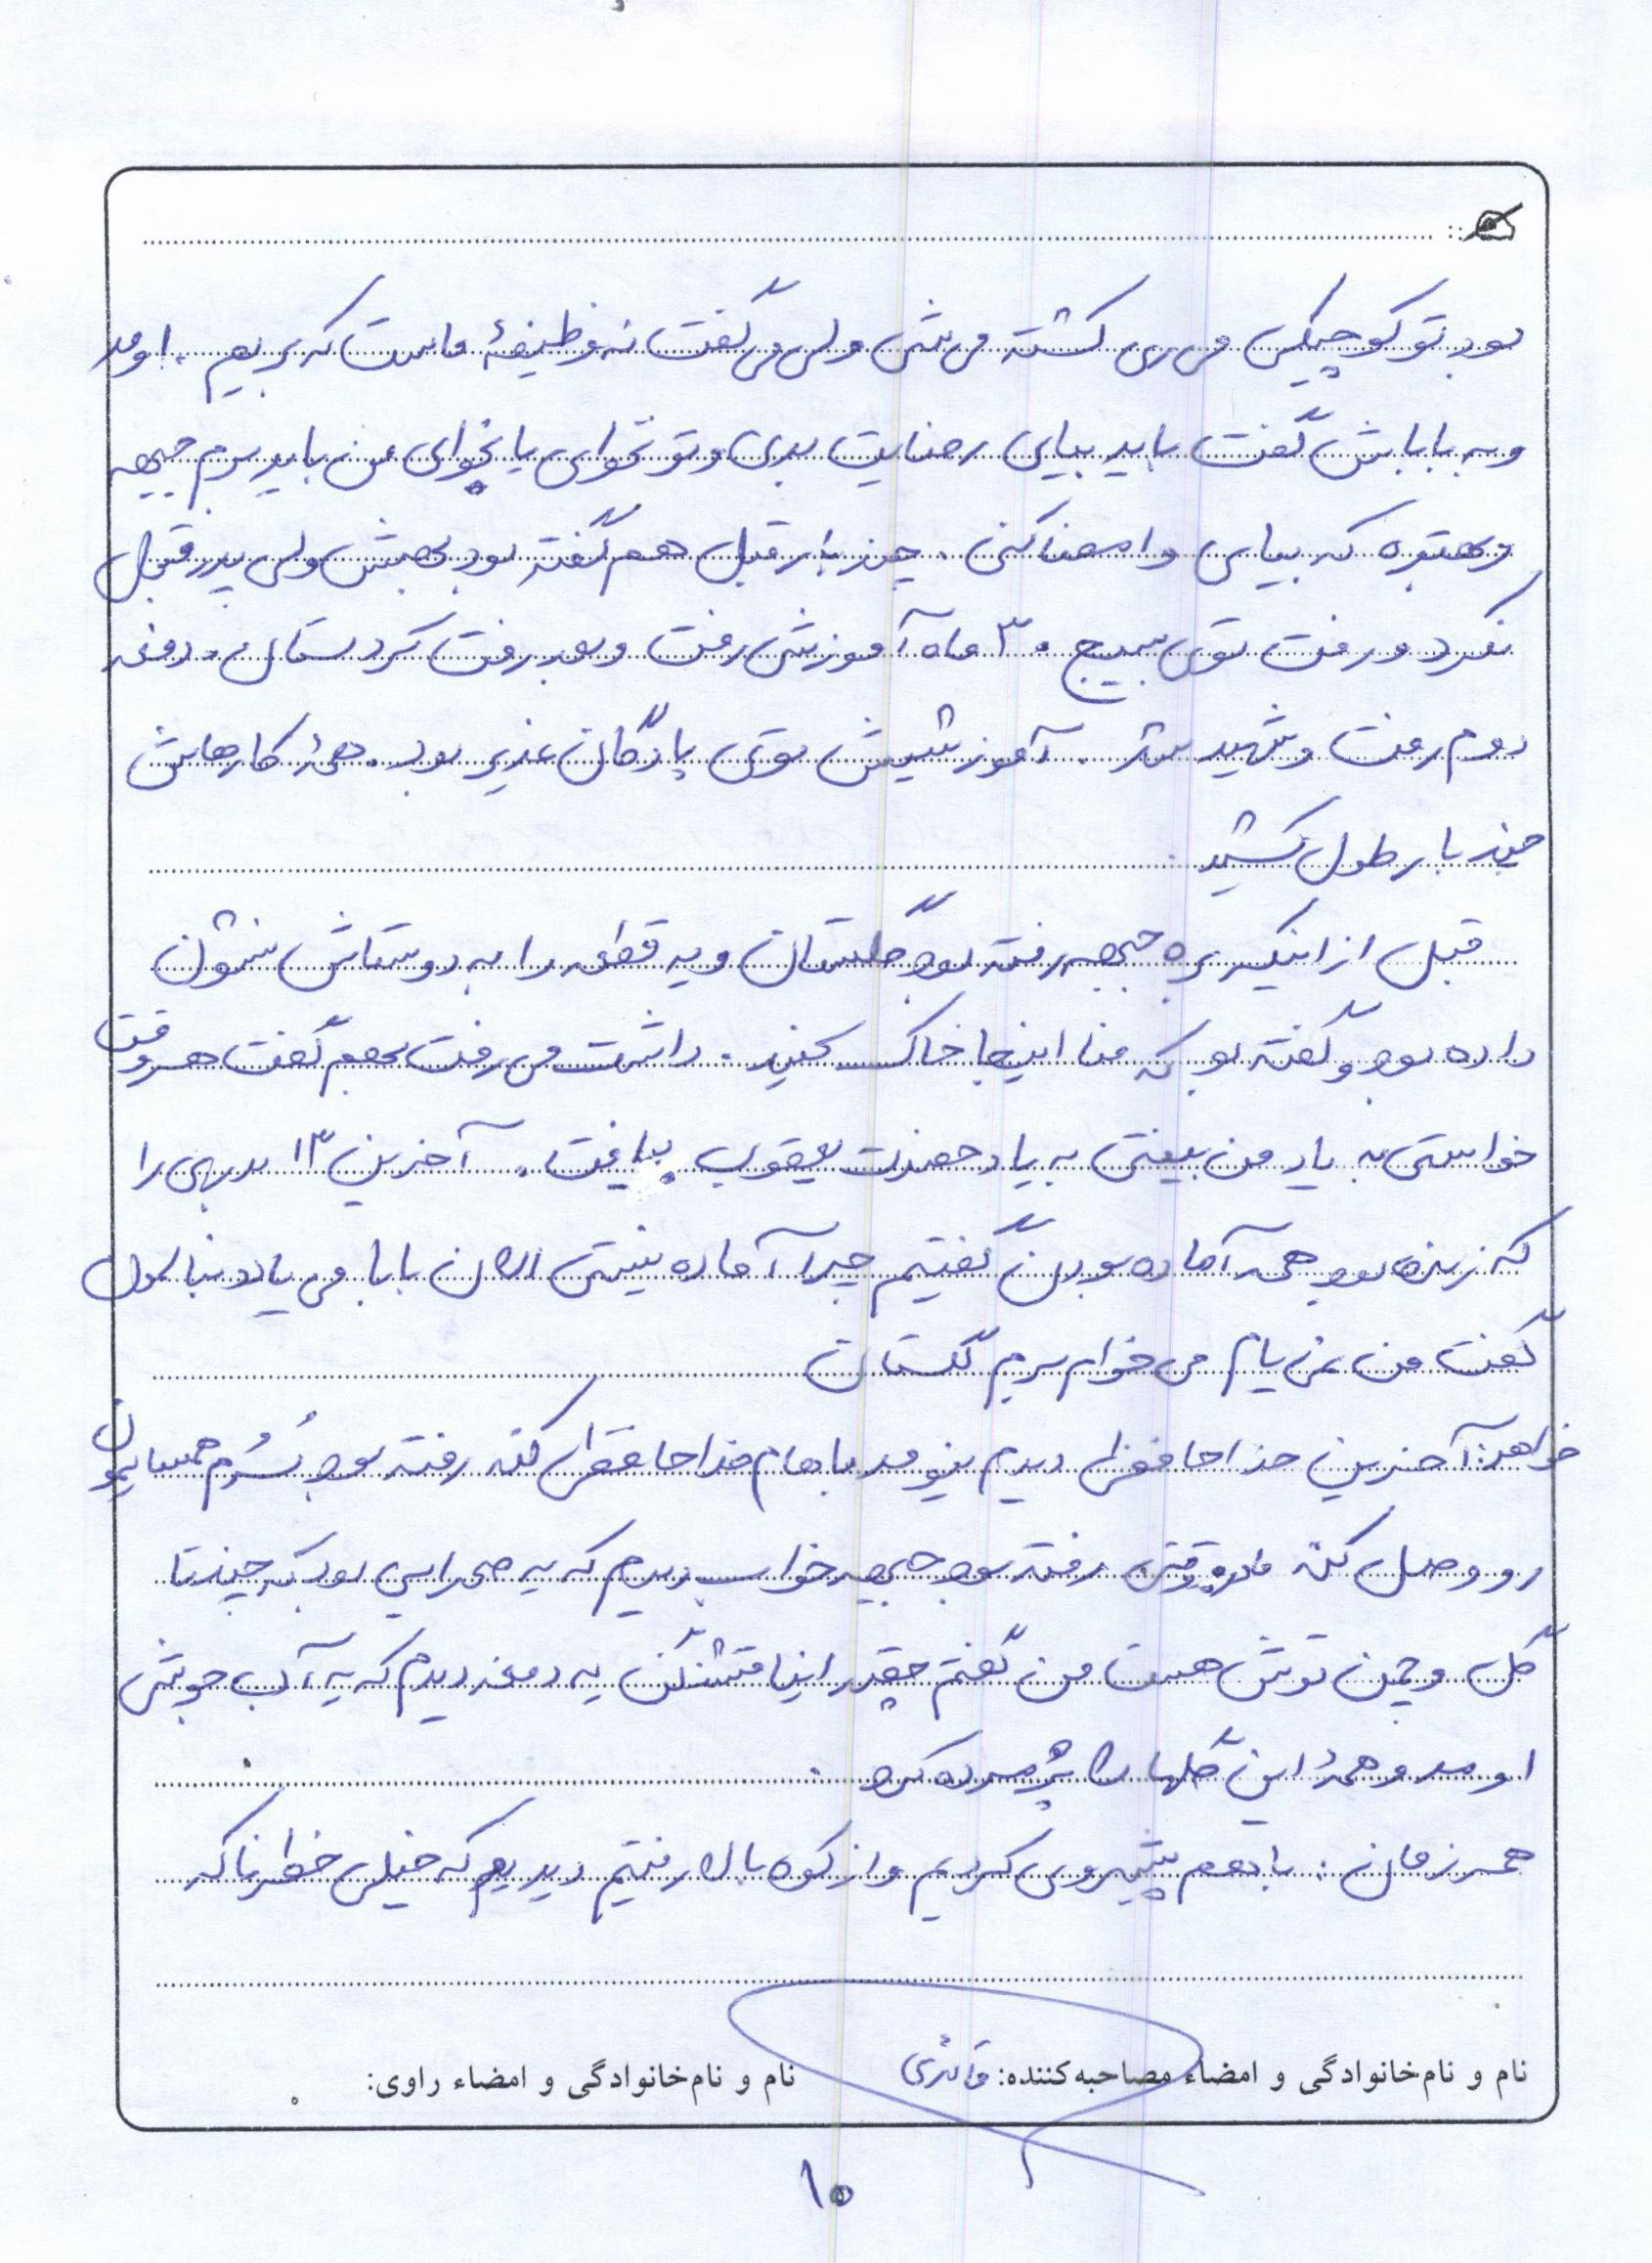 بود تو کوچیکی می ری کشته می شی ولی می گفت نه وظیفهٔ ماست که بریم . اومد
و به باباش گفت باید بیای رضایت بدی و تو نخوای یا بخوای من باید برم جبهه
و بهتره که بیای و امضا کنی . چند بار قبل هم گفته بود بهش ولی پدر قبول
نکرد و رفت توی بسیج . ۳ ماه آموزشی رفت و بعد رفت کردستان . دفعه
دوم رفت و شهید شد . آموزشیش توی پادگان غدیر بود . همهٔ کارهاش
چند بار طول کشید .
قبل از اینکه بره جبهه رفته بود گلستان و یه قطعه را به دوستاش نشون
داده بود و گفته بود که منا اینجا خاک کنید . داشت می رفت بهم گفت هر وقت
خواستی به یاد من بیفتی به یاد حضرت یعقوب بیافت . آخرین ۱۳ بدری را
که زنده بود همه آماده بودن گفتیم چرا آماده نیستی الان بابا می یاد دنبالمون
گفت من نمی یام می خوام برم گلستان
خواهر: آخرین خداحافظی دیدم نیومد باهام خداحافظی کنه رفته بود سُرُم همسایمون
رو وصل کنه مادر: وقتی رفته بود جبهه خواب دیدم که یه صحرایی بود که چند تا
گل و چمن توش هست من گفتم چقدر اینا قشنگن یه دفعه دیدم که یه آب جوشی
اومد و همهٔ این گلها را پژمرده کرد .
همرزمان : با هم پیشروی کردیم و از کوه بالا رفتیم دیدیم که خیلی خطرناکه
نام و نام‌خانوادگی و امضاء مصاحبه‌کننده: نام و نام‌خانوادگی و امضاء راوی:
۱۰